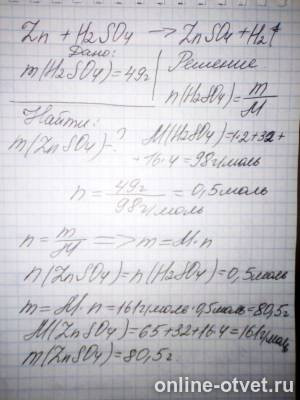 Zn + H2SO4 → ZnSO4 + H2↑
Дано:
m(H2SO4)=49г
Решение
n(H2SO4)=m/M
Найти:
m(ZnSO4)-?
M(H2SO4)=1·2+32+
+16·4=98г/моль
n = 49г/98г/моль = 0,5моль
n = m/M => m=M·n
n(ZnSO4)=n(H2SO4)=0,5моль
m=M·n=161г/моль·0,5моль=80,5г
M(ZnSO4)=65+32+16·4=161г/моль
m(ZnSO4)=80,5г.
online-otvet.ru